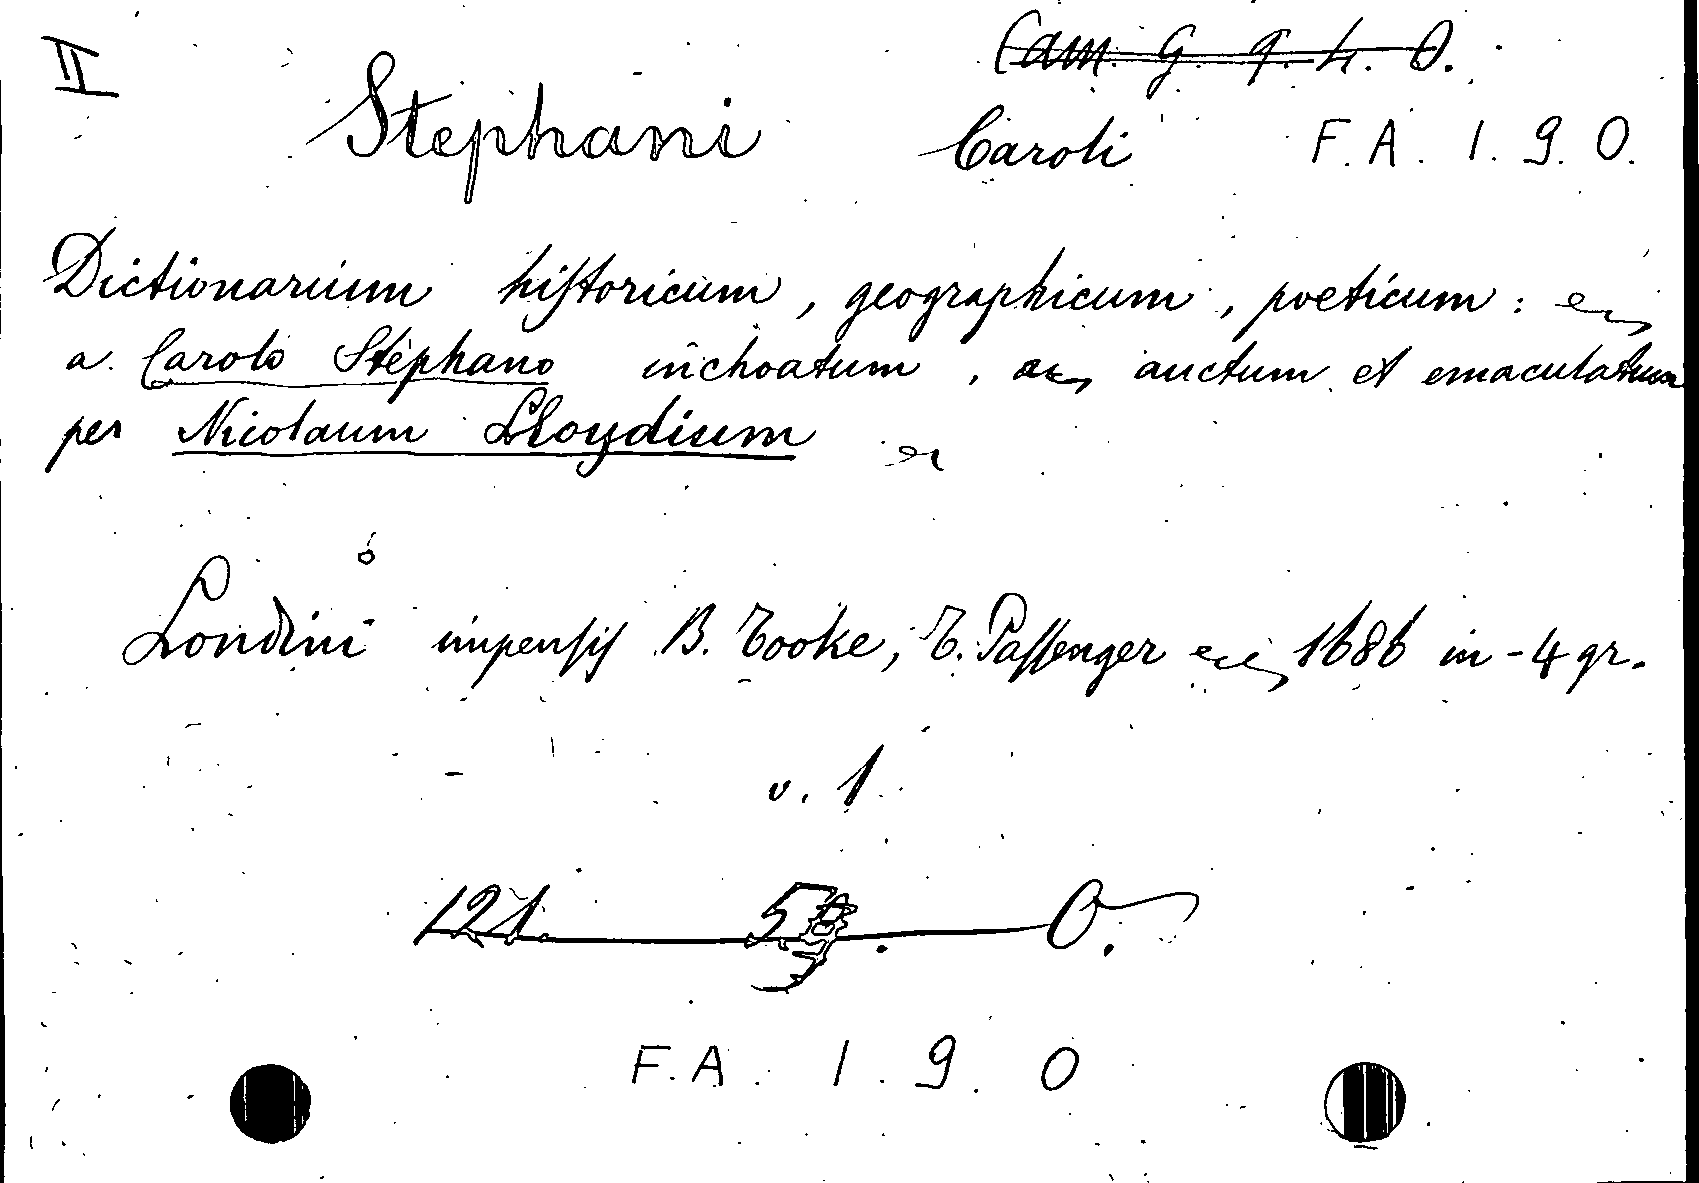 II
Cam. G. 9. 4. O.
Stephani Caroli F. A. 1. 9. O.
Dictionarium historicum, geographicum, poeticum:
a Carolo Stephano inchoatum, auctum et emaculatum
per Nicolaum Lloydium
Londini impensis B. Tooke, T. Passenger 1686 in-4 gr.
v. 1
121. O.
F. A. 1. 9. O